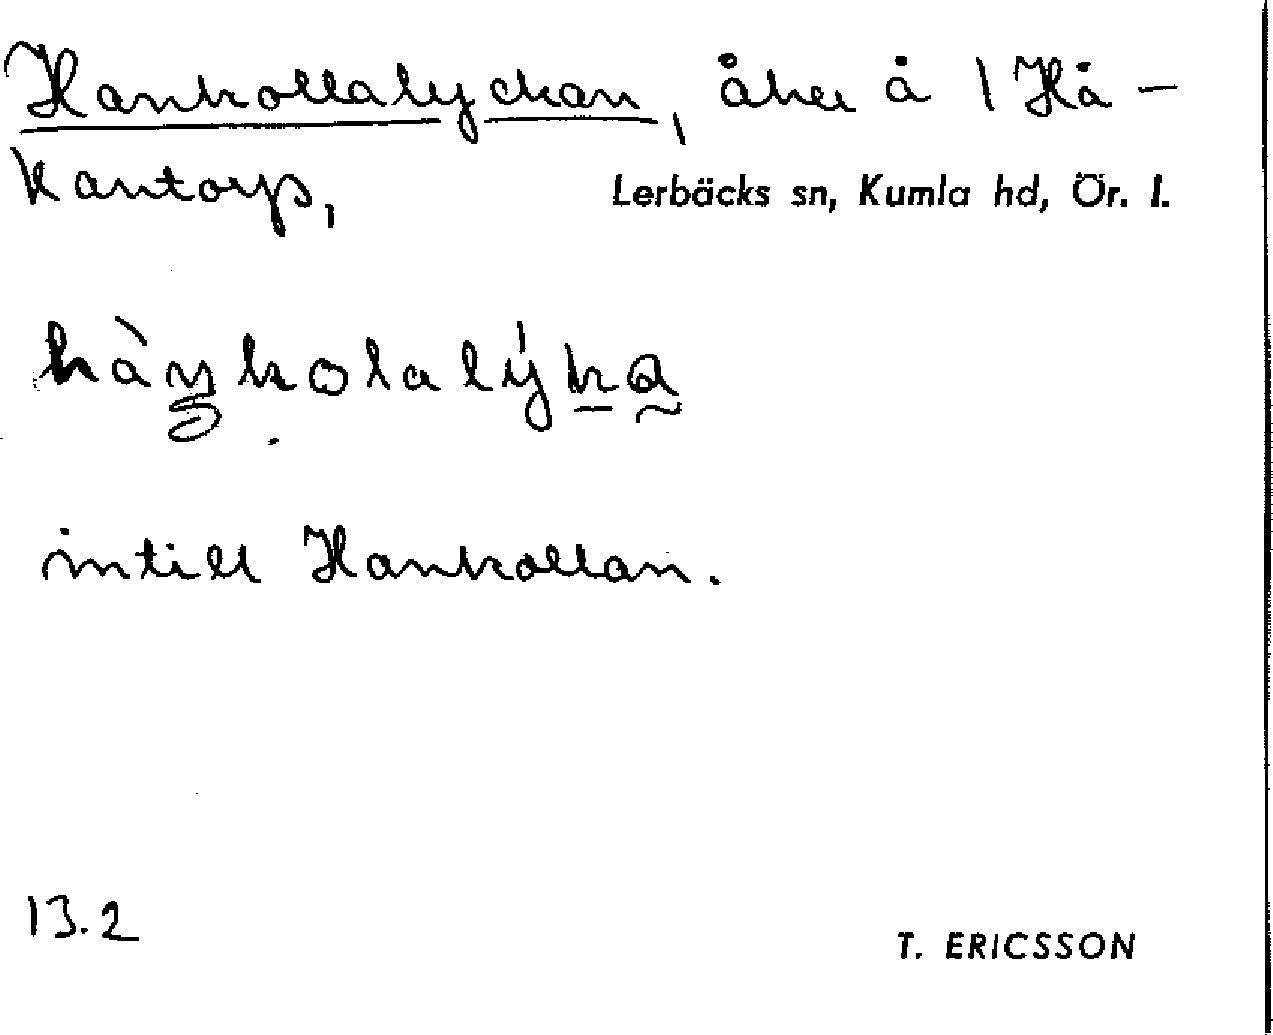 Hankollalyckan, åker å 1 Hå-
kantorp,
Lerbäcks sn, Kumla hd, Ör. l.
hàŋkolalýka
intill Hankollan.
13.2
T. ERICSSON